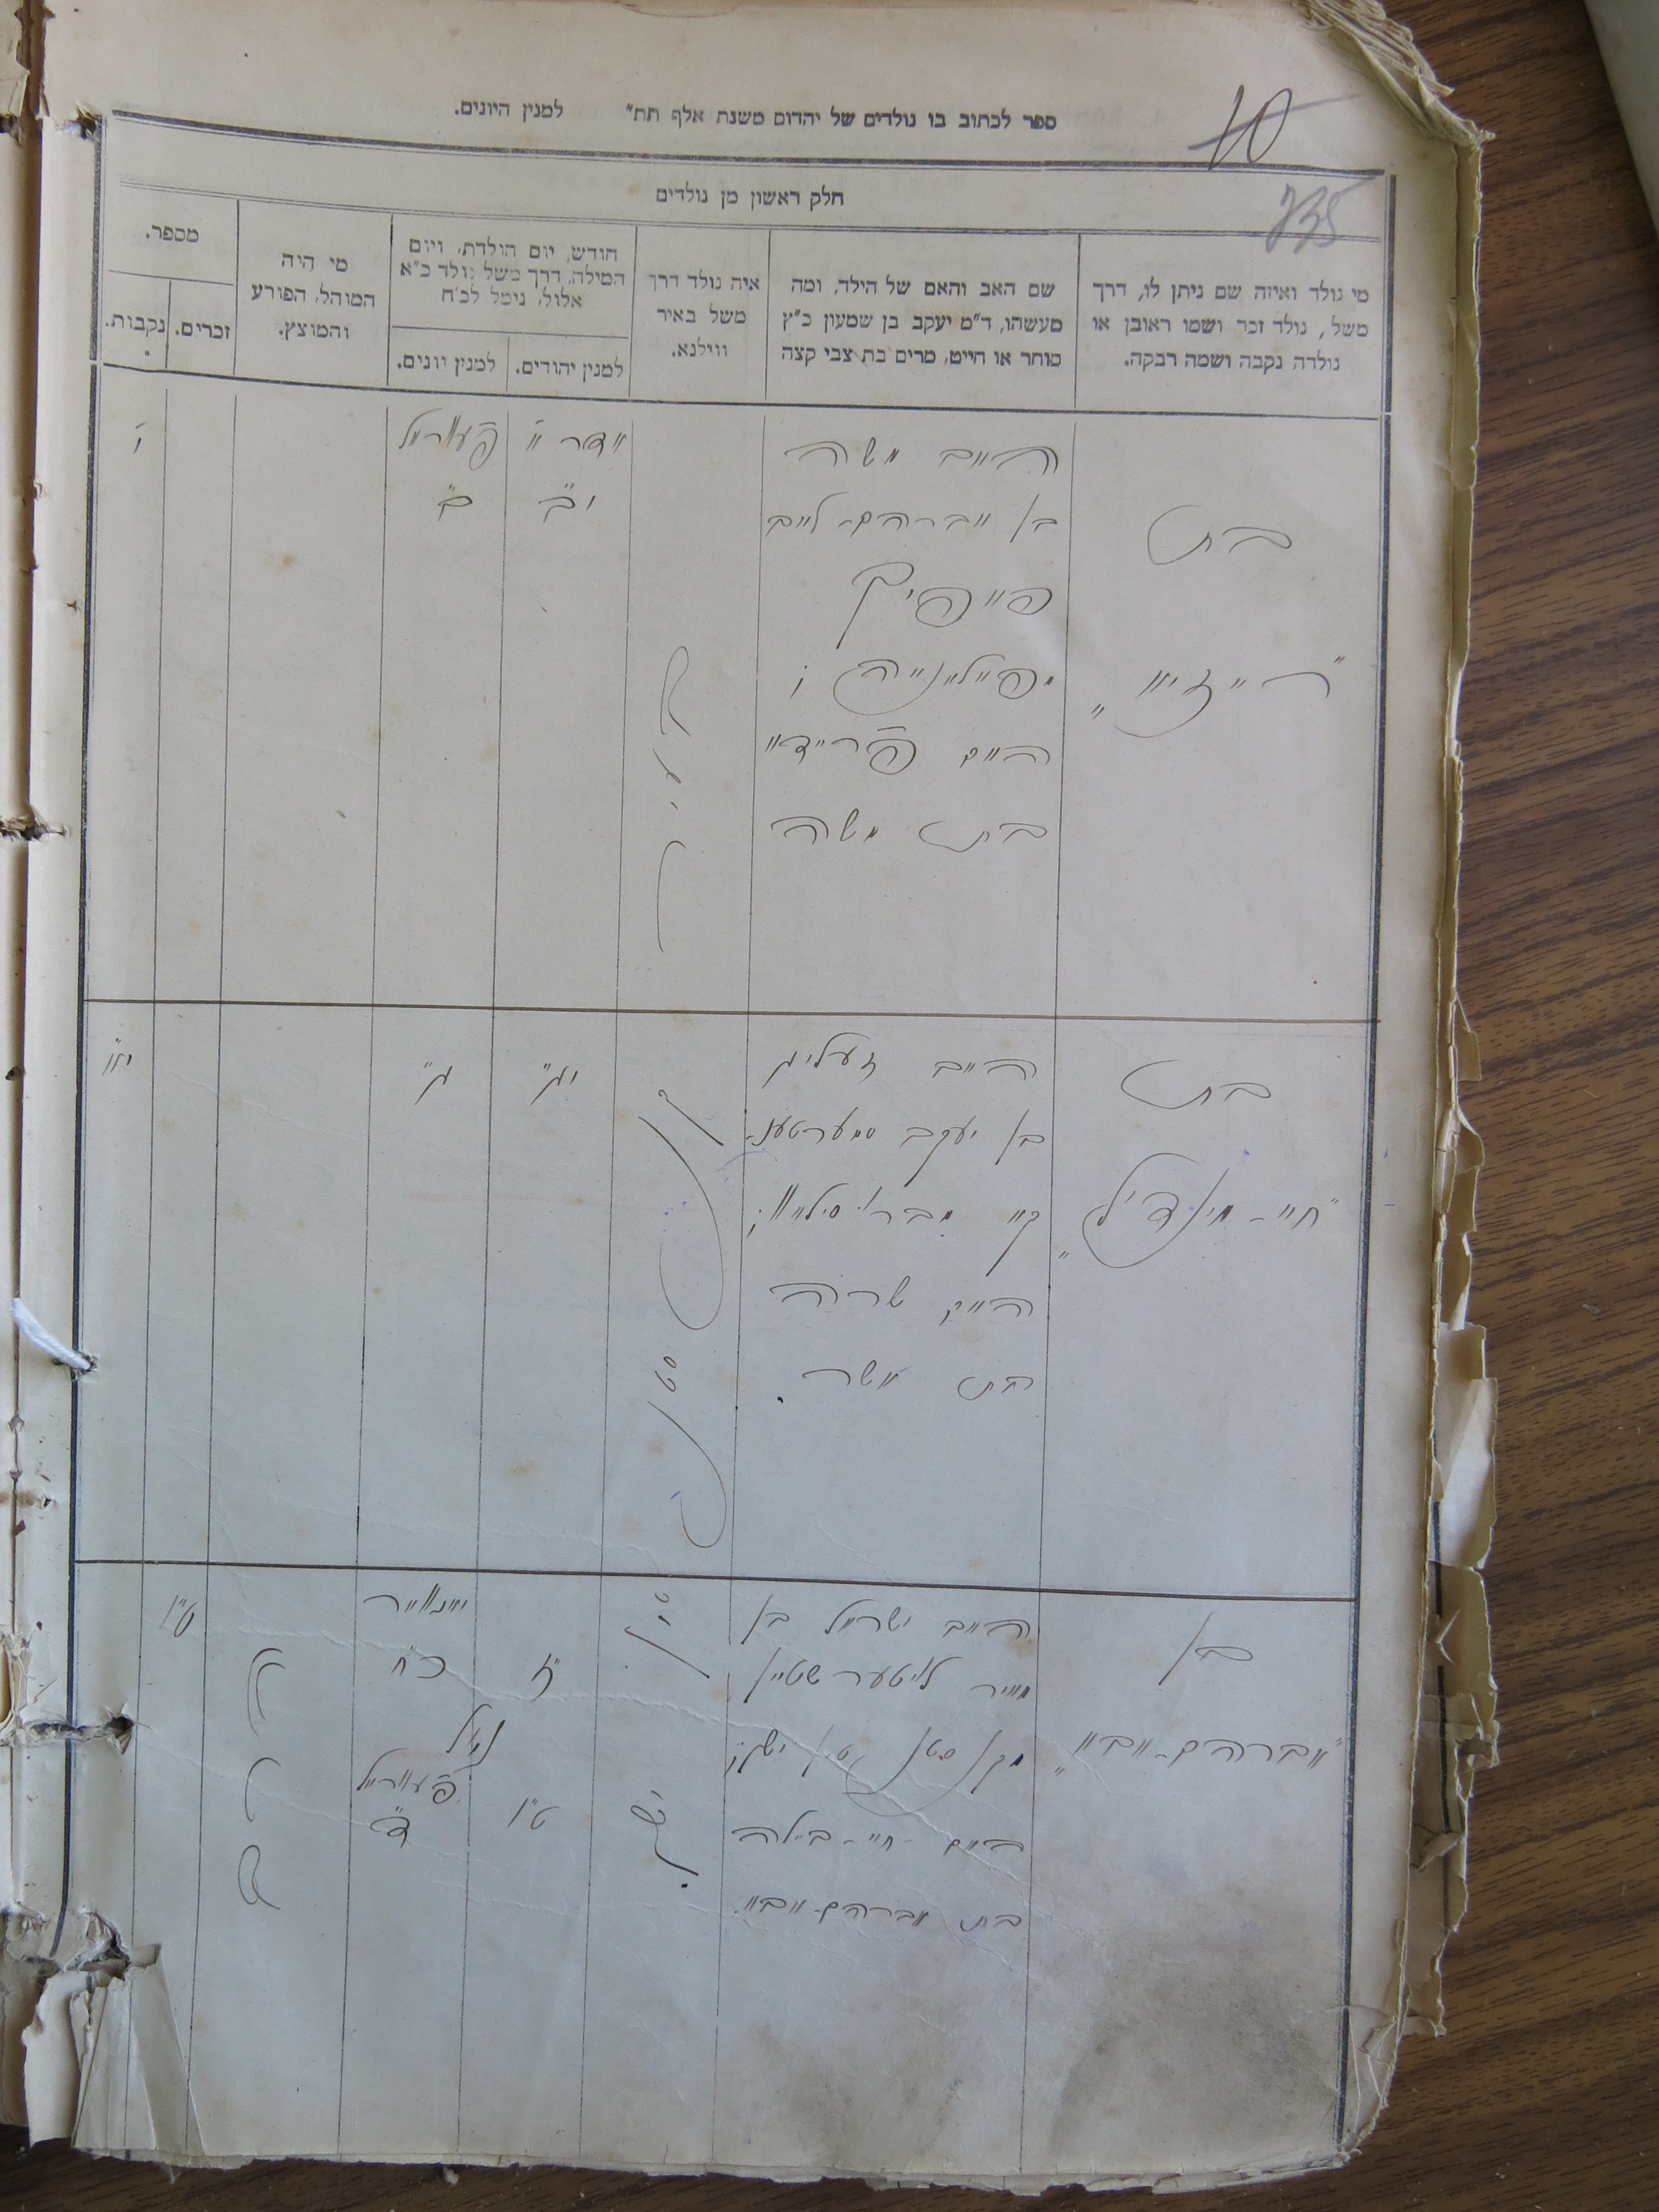 ספר לכתוב בו נולדים של יהדום משנת אלף תת״ למנין היונים.
10
735
חלק ראשון מן נולדים
מי נולד ואיזה שם ניתן לו, דרך
משל, נולד זכר ושמו ראובן או
נולדה נקבה ושמה רבקה.
שם האב והאם של הילד, ומה
מעשהו, ד״מ יעקב בן שמעון כ״ץ
סוחר או חייט, מרים בת צבי קצה
איה נולד דרך
משל באיר
ווילנא.
חודש, יום הולדת, ויום
המילה, דרך משל נולד כ״א
אלול, נימל לכ״ח
למנין יהודים.
למנין יונים.
מי היה
המוהל, הפורע
והמוצץ.
מספר.
זכרים.
נקבות.
בת
האב משה
בן אברהם-ליב
האם פרידא
בת משה
אדר א
י״ב
פעוראל
ב״
י
בת
״חי׳-מינדיל״
האב זעליג
בן יעקב
האם שרה
בת אשר
י״ג
ג״
י״א
בן
״אברהם-אבא״
האב ישראל בן
מאיר ליטערשטיין
האם חי׳-ביילה
בת אברהם-אבא
ז״
ט״ו
יאנואר
כ״ח
נימל
פעוראל
ד״
ט״ו